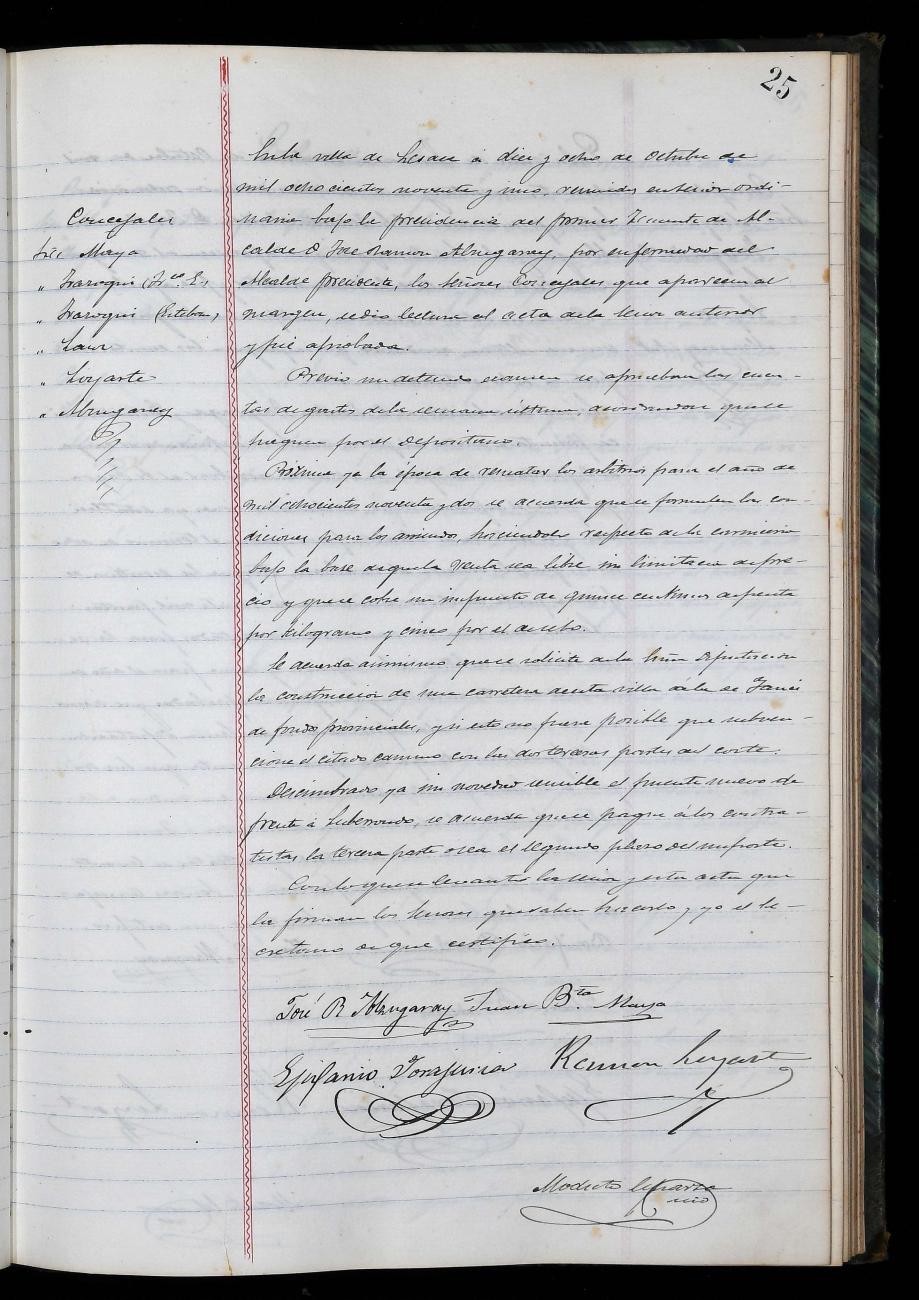 25
En la villa de Lesaca á diez y ocho de Octubre de
mil ochocientos noventa y uno, reunidos en sesión ordi-
naria bajo la presidencia del primer Teniente de Al-
calde D José Ramon Almugaray, por enfermedad del
Alcalde presidente, los Señores Concejales que aparecen al
margen, se dio lectura al acta de la sesion anterior
y fué aprobada.
Concejales
Sres Maya
" (Frco E.)
" (Esteban)
"
" Loyarte
" Almugaray
Previo un detenido examen se aprueban las cuen-
tas de gastos de la semana última, acordandose que se
paguen por el Depositario.
Próxima ya la época de rematar los arbitrios para el año de
mil ochocientos noventa y dos se acuerda que se formulen las con-
diciones para los arriendos, haciendolas respecto de la carniceria
bajo la base de que la venta sea libre, sin limitacion de pre-
cio y que se cobre un impuesto de quince centimos de peseta
por kilogramo y cinco por el de sebo.
Se acuerda asimismo que se solicite de la Excma Diputacion
la construccion de una carretera de esta villa á la de Yanci
de fondos provinciales, y si esto no fuese posible que subven-
cione el citado camino con las dos terceras partes del coste.
Descimbrado ya sin novedad sensible el puente nuevo de
frente á, se acuerda que se pague á los contra-
tistas la tercera parte o sea el segundo plazo del importe.
Con lo que se levantó la sesion y esta acta que
la firman los Señores que saben hacerlo y yo el Se-
cretario de que certifico.
José R Almugaray Juan Bta. Maya
Epifanio Ramon Loyarte
Modesto